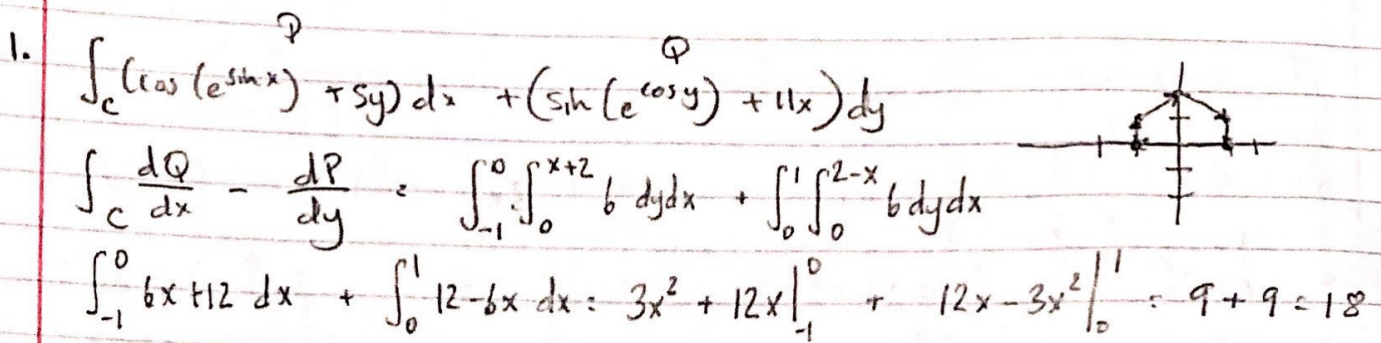 P Q
1. ∫_C (cos(e^{sin x}) + 5y) dx + (sin(e^{cos y}) + 11x) dy
∫_C dQ/dx - dP/dy = ∫_{-1}^{0} ∫_{0}^{x+2} 6 dydx + ∫_{0}^{1} ∫_{0}^{2-x} 6 dydx
∫_{-1}^{0} 6x + 12 dx + ∫_{0}^{1} 12 - 6x dx = 3x² + 12x |_{-1}^{0} + 12x - 3x² |_{0}^{1} = 9 + 9 = 18